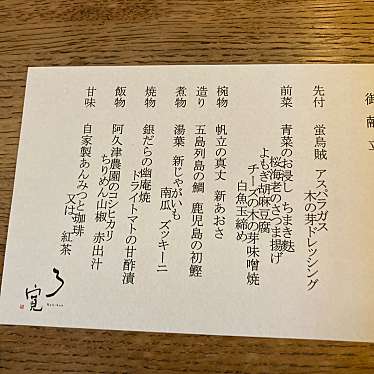 御献立
先付　蛍烏賊　アスパラガス
木の芽ドレッシング
前菜　青菜のお浸し　ちまき麩
桜海老のさつま揚げ
よもぎ胡麻豆腐
チーズの木の芽味噌焼
白魚玉締め
椀物　帆立の真丈　新あおさ
造り　五島列島の鯛　鹿児島の初鰹
煮物　湯葉　新じゃがいも
南瓜　ズッキーニ
焼物　銀だらの幽庵焼
ドライトマトの甘酢漬
飯物　阿久津農園のコシヒカリ
ちりめん山椒　赤出汁
甘味　自家製あんみつと珈琲
又は　紅茶